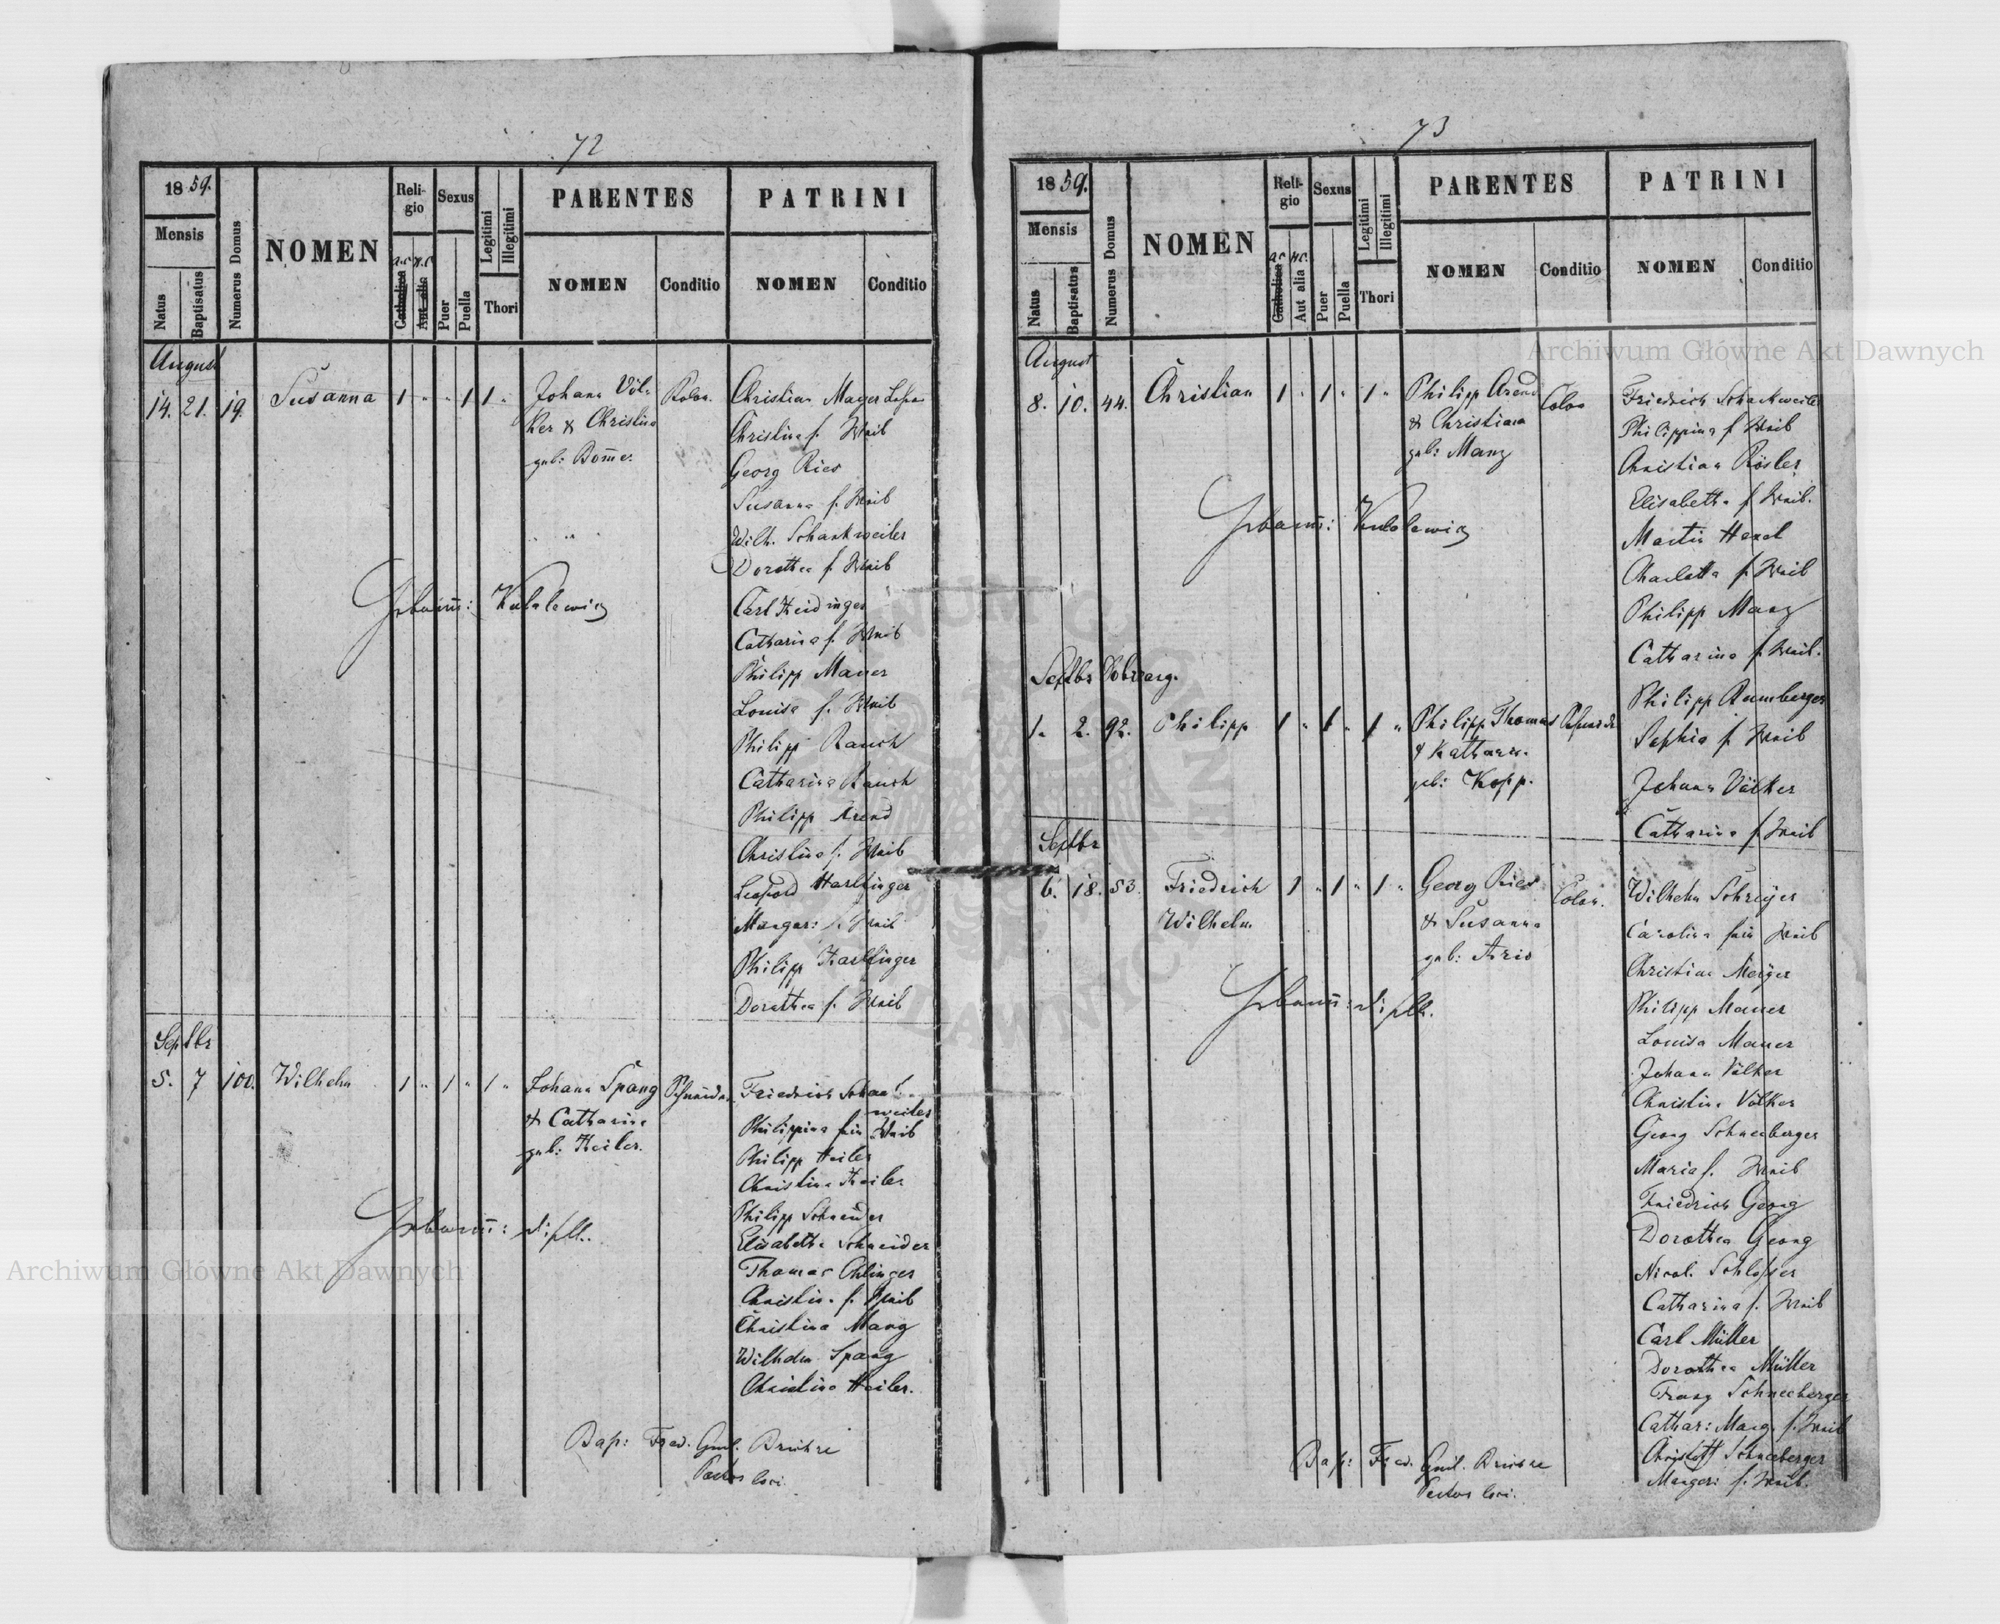 72
1859.
Mensis
Natus
Baptisatus
Numerus Domus
NOMEN
Religio
a.c. H.C.
Catholica
Aut alia
Sexus
Puer
Puella
Legitimi
Illegitimi
Thori
PARENTES
NOMEN
Conditio
PATRINI
NOMEN
Conditio
August
14. 21. 19. Susanna 1 " " 1 1 " Johann Völ-
ker & Christina
geb: Bomer.
Colon.
Christian Mayer
Christina s. Weib
Georg Ries
Susanna s. Weib
Wilh. Schankweiler
Dorothea s. Weib
Carl Heidinger
Catharina s. Weib
Philipp Mauer
Louisa s. Weib
Philipp Rauch
Catharina Rauch
Philipp Arend
Christina s. Weib
Leopold Harlfinger
Margar: s. Weib
Philipp Harlfinger
Dorothea s. Weib
Hebamm: Kulalewicz
Septbr
5. 7 100. Wilhelm 1 " 1 " 1 " Johann Spang
& Catharina
geb: Heiler.
Schneider
Friedrich Schank-
weiler
Philippina sein Weib
Philipp Heiler
Christina Heiler
Philipp Schneider
Elisabetha Schneider
Thomas Ohlinger
Christina s. Weib
Christina Mang
Wilhelm Spang
Christina Heiler.
Hebamm: dieselb.
Bap: Fred. Guil. Brichze
Pastor loci.
73
1859.
Mensis
Natus
Baptisatus
Numerus Domus
NOMEN
Religio
a.c. H.C.
Catholica
Aut alia
Sexus
Puer
Puella
Legitimi
Illegitimi
Thori
PARENTES
NOMEN
Conditio
PATRINI
NOMEN
Conditio
August
8. 10. 44. Christian 1 " 1 " 1 " Philipp Arend
& Christiana
geb: Manz
Colon
Friedrich Schankweiler
Philippina s. Weib
Christian Rösler
Elisabetha s. Weib.
Martin Hexel
Charlotta s. Weib
Philipp Manz
Catharina s. Weib.
Hebamm: Kulalewicz
Septbr
1. 2. 92. Philipp 1 " 1 " 1 " Philipp Thomas
& Kathar.
geb: Kopp.
Philipp Rumberger
Sophia s. Weib
Johann Völker
Catharina s. Weib
Septbr
6. 18. 53. Friedrich
Wilhelm
1 " 1 " 1 " Georg Ries
& Susanna
geb: Arid
Colon.
Wilhelm Schreyer
Carolina sein Weib
Christian Meyer
Philipp Mauer
Louisa Mauer
Johann Völker
Christina Völker
Georg Schneeberger
Maria s. Weib
Friedrich Georg
Dorothea Georg
Nicol. Schlosser
Catharina s. Weib
Carl Müller
Dorothea Müller
Franz Schneeberger
Cathar: Marg. s. Weib
Christoff Schneeberger
Margar: s. Weib.
Hebamm: dieselb.
Bap: Fred. Guil. Brichze
Pastor loci.
Archiwum Główne Akt Dawnych
Archiwum Główne Akt Dawnych